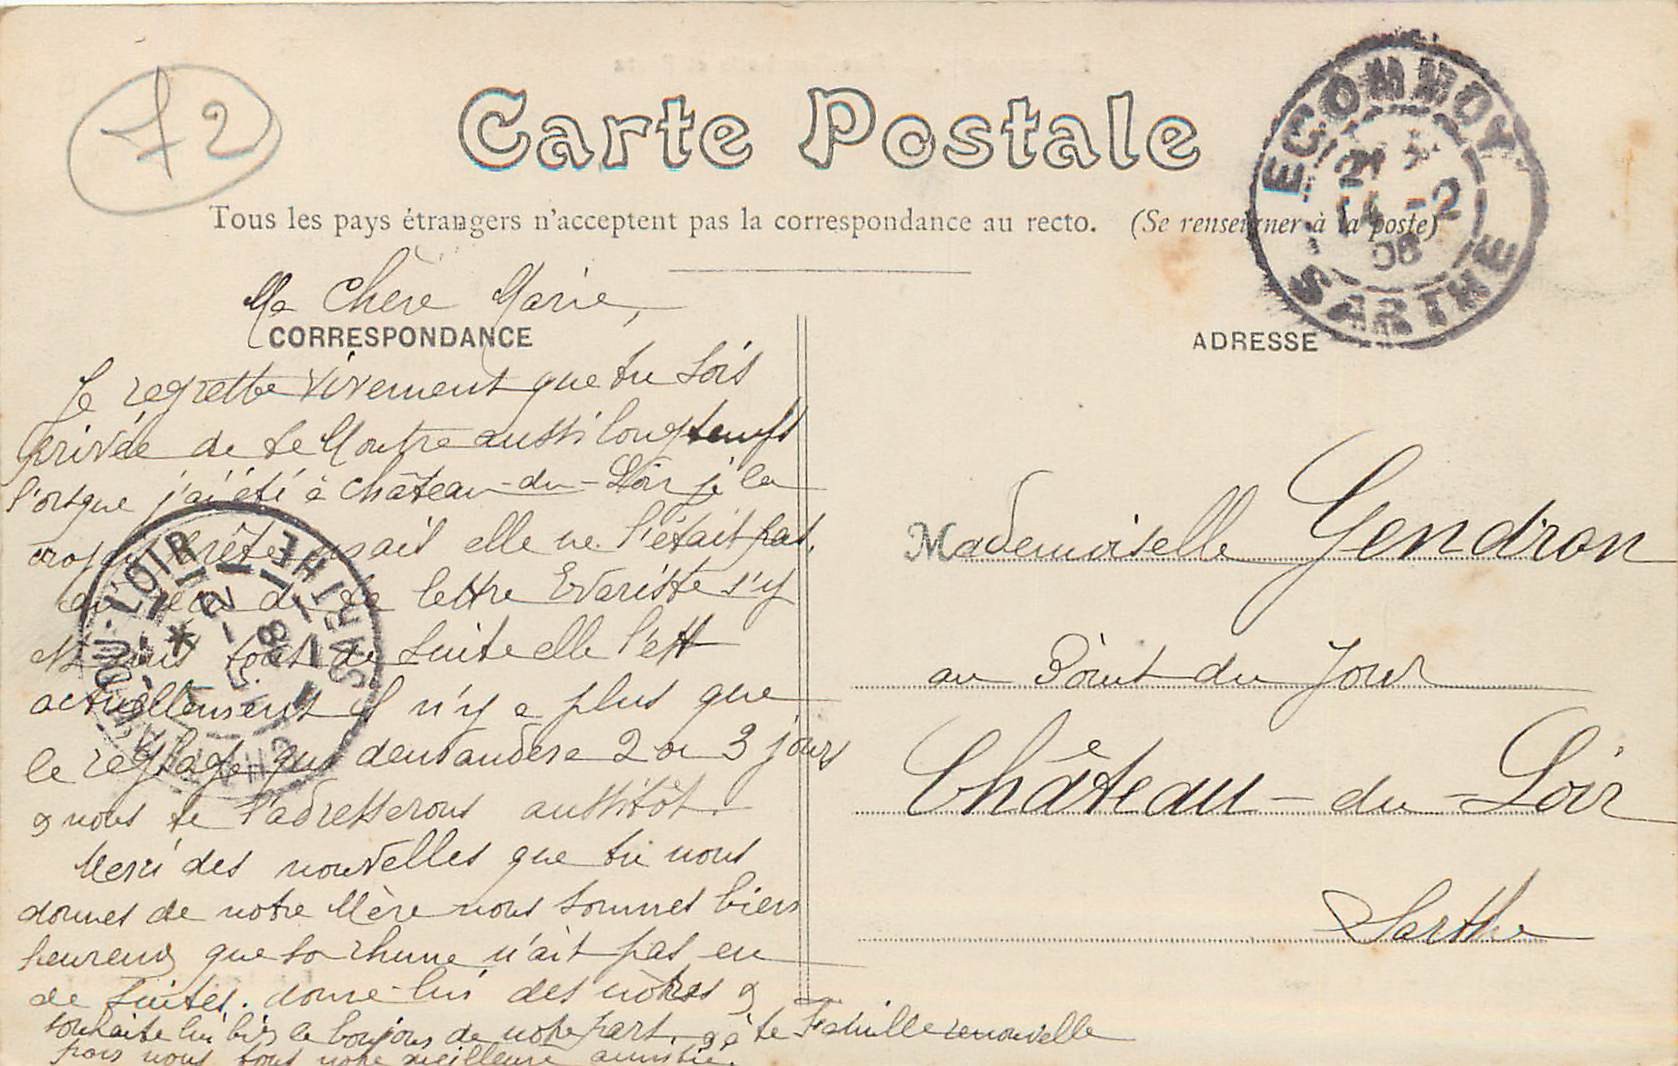 72
Carte Postale
Tous les pays étrangers n'acceptent pas la correspondance au recto. (Se renseigner à la poste)
ECOMMOY
14 -2
08
SARTHE
Ma Chère Marie,
CORRESPONDANCE
Je regrette vivement que tu sois
privée de ta Montre aussi longtemps
l'orsque j'ai été à Château-du-Loir je la
croyais prête mais elle ne l'était pas.
au reçu de ta lettre Evariste s'y
est mis tout de suite elle l'est
actuellement il n'y a plus que
le réglage qui demandera 2 ou 3 jours
& nous te l'adresserons aussitôt.
Merci des nouvelles que tu nous
donnes de notre Mère nous sommes biens
heureux que son rhume n'ait pas eu
de suites. donne-lui des nôtres &
souhaite lui bien le bonjour de notre part. & à ta Famille renouvelle
pour nous tous notre meilleure amitié.
DU-LOIR
SARTHE
ADRESSE
Mademoiselle Gendron
au Point du Jour
Château-du-Loir
Sarthe